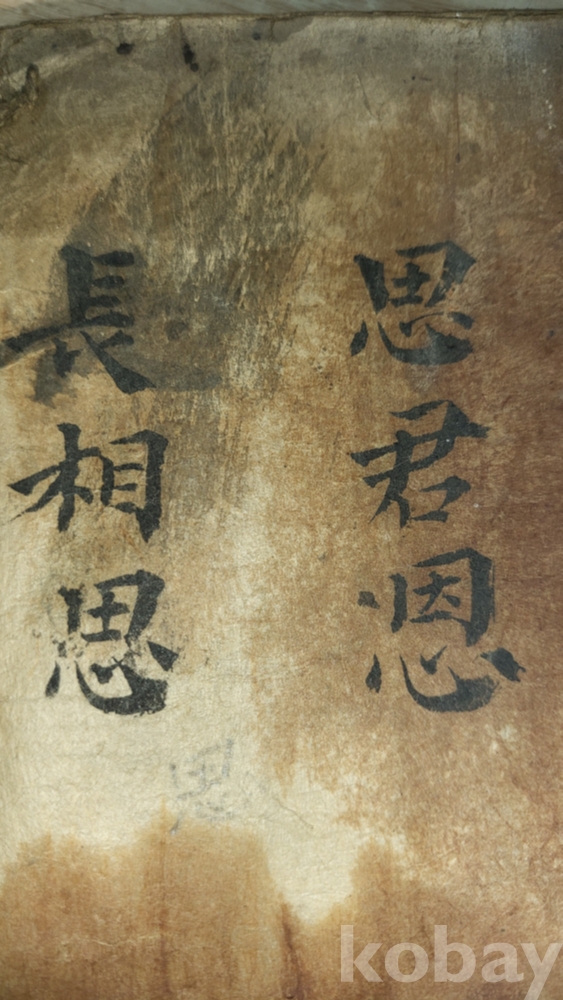 思君恩
長相思
思
kobay